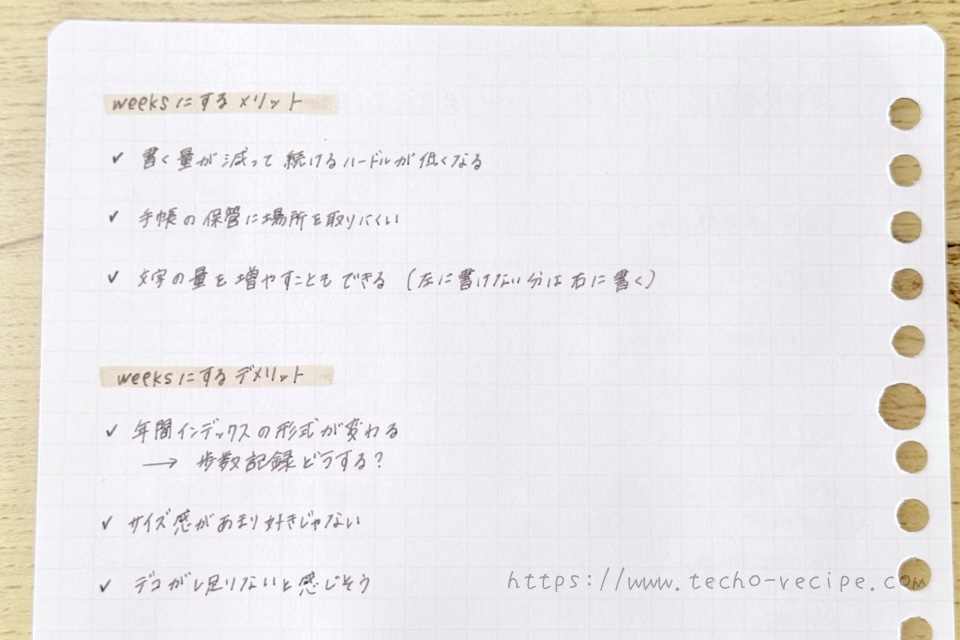 weeksにするメリット
✓ 書く量が減って続けるハードルが低くなる
✓ 手帳の保管に場所を取りにくい
✓ 文字の量を増やすこともできる (左に書けない分は右に書く)
weeksにするデメリット
✓ 年間インデックスの形式が変わる
→ 歩数記録どうする?
✓ サイズ感があまり好きじゃない
✓ デコがし足りないと感じそう
https://www.techo-recipe.com